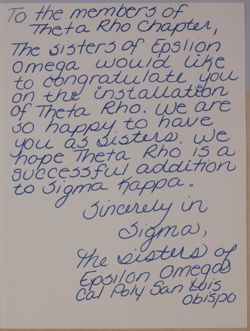 To the members of
Theta Rho Chapter,
The sisters of Epsilon
Omega would like
to congratulate you
on the installation
of Theta Rho. We are
so happy to have
you as sisters. We
hope Theta Rho is a
successful addition
to Sigma Kappa.
Sincerely in
Sigma,
The sisters of
Epsilon Omega
Cal Poly San Luis
Obispo